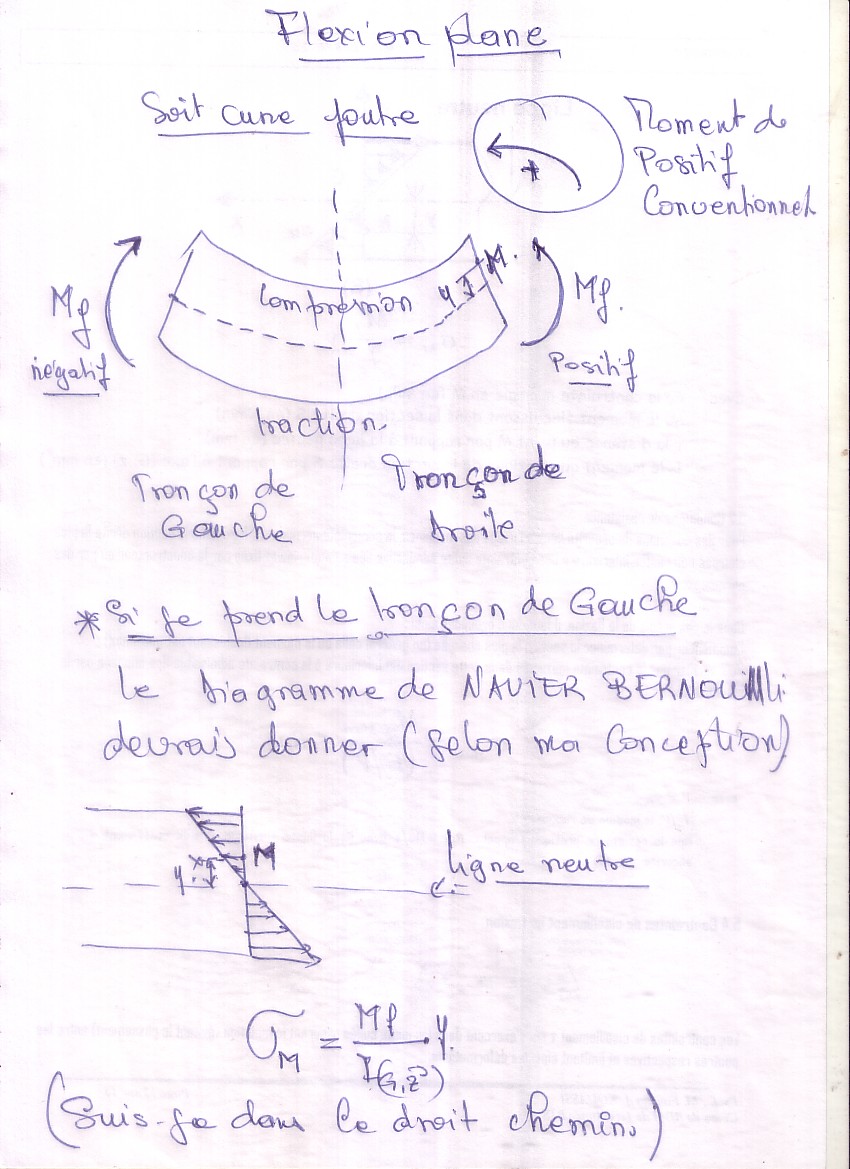 Flexion plane
Soit une poutre
Moment de
Positif
Conventionnel
+
Mf
négatif
Compression
y
M
Mf.
Positif
traction.
Tronçon de
Gauche
Tronçon de
droite
* Si je prend le tronçon de Gauche
le Diagramme de NAVIER BERNOUlli
devrais donner (selon ma Conception)
M
y
ligne neutre
σM = Mf / I(G,z) . y.
(Suis-je dans le droit chemin.)